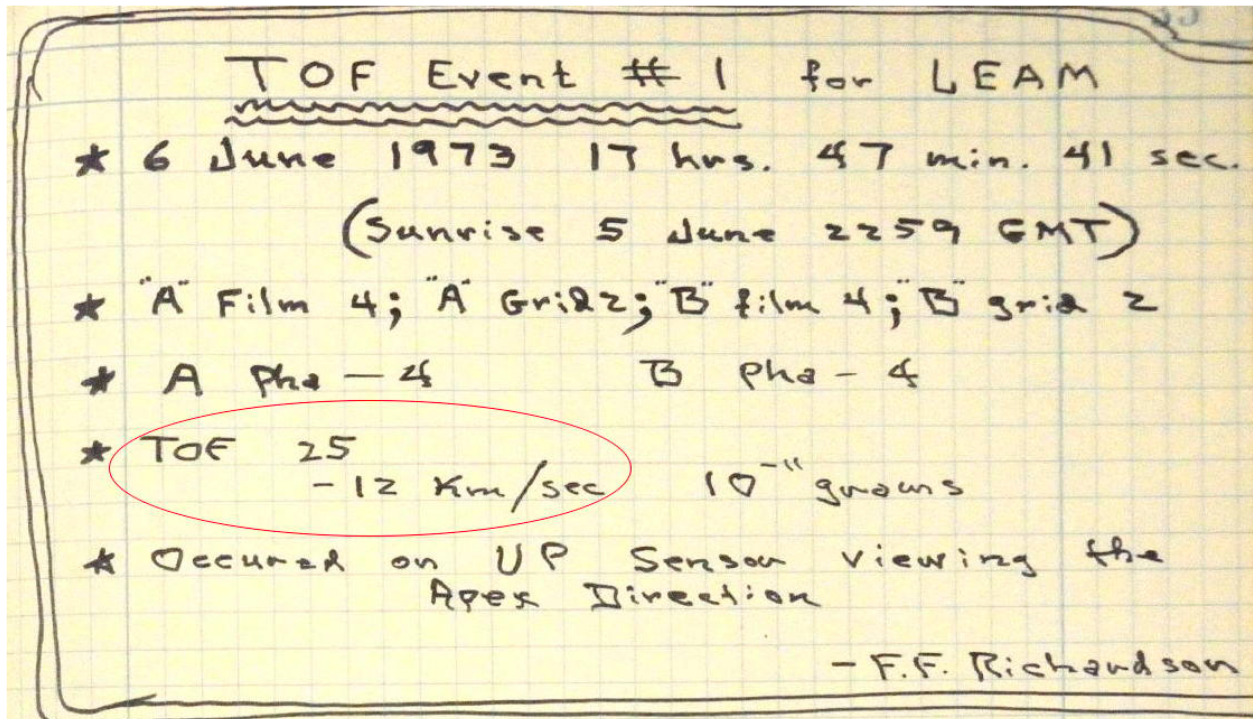 TOF Event # 1 for LEAM
* 6 June 1973 17 hrs. 47 min. 41 sec.
(Sunrise 5 June 2259 GMT)
* "A" Film 4; "A" Grid 2; "B" film 4; "B" grid 2
* A pha - 4 B pha - 4
* TOF 25
- 12 Km/sec 10⁻¹¹ grams
* Occured on UP Sensor viewing the
Apex Direction
- F.F. Richardson